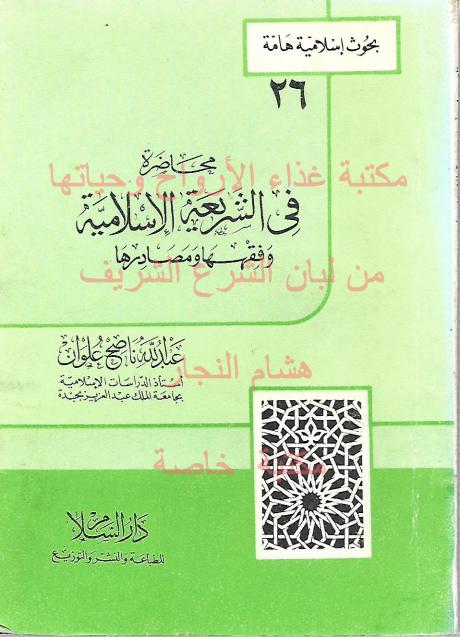 بحوث إسلامية هامة
٢٦
محاضرة
مكتبة غذاء الأرواح وحياتها
في الشريعة الإسلامية
وفقهها ومصادرها
من لبان الشرع الشريف
عبد الله ناصح علوان
هشام النجار
أستاذ الدراسات الإسلامية
بجامعة الملك عبد العزيز بجدة
مكتبة خاصة
دار السلام
للطباعة والنشر والتوزيع